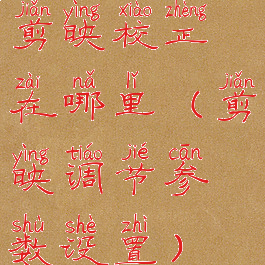 jiǎn yìng xiào zhèng
剪映校正
zài nǎ lǐ jiǎn
在哪里（剪
yìng tiáo jié cān
映调节参
shù shè zhì
数设置）